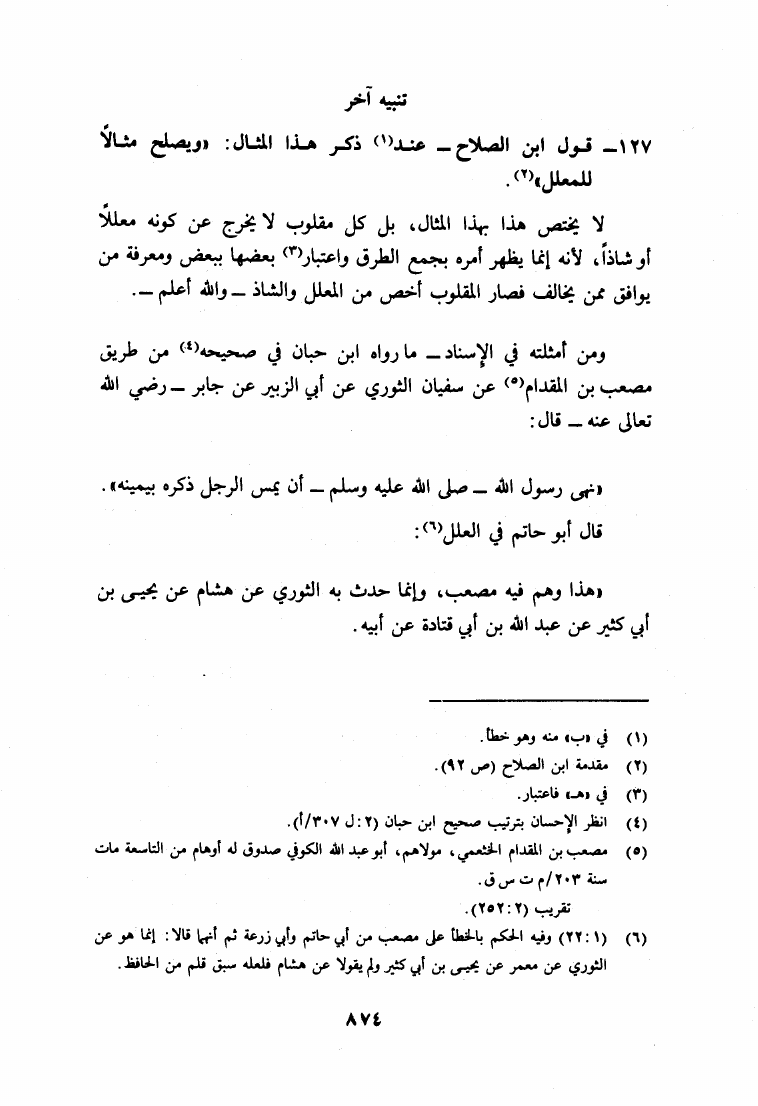 تنبيه آخر
١٢٧ـ قول ابن الصلاح ـ عند(١) ذكر هذا المثال: «ويصلح مثالاً
للمعلل»(٢).
لا يختص هذا بهذا المثال، بل كل مقلوب لا يخرج عن كونه معللاً
أو شاذاً، لأنه إنما يظهر أمره بجمع الطرق واعتبار(٣) بعضها ببعض ومعرفة من
يوافق ممن يخالف فصار المقلوب أخص من المعلل والشاذ ـ والله أعلم ـ.
ومن أمثلته في الإسناد ـ ما رواه ابن حبان في صحيحه(٤) من طريق
مصعب بن المقدام(٥) عن سفيان الثوري عن أبي الزبير عن جابر ـ رضي الله
تعالى عنه ـ قال:
«نهى رسول الله ـ صلى الله عليه وسلم ـ أن يمس الرجل ذكره بيمينه».
قال أبو حاتم في العلل(٦):
«هذا وهم فيه مصعب، وإنما حدث به الثوري عن هشام عن يحيى بن
أبي كثير عن عبد الله بن أبي قتادة عن أبيه.
(١) في «ب» منه وهو خطأ.
(٢) مقدمة ابن الصلاح (ص ٩٢).
(٣) في «هـ» فاعتبار.
(٤) انظر الإحسان بترتيب صحيح ابن حبان (٢: ل ٣٠٧/أ).
(٥) مصعب بن المقدام الخثعمي، مولاهم، أبو عبد الله الكوفي صدوق له أوهام من التاسعة مات
سنة ٢٠٣/م ت س ق.
تقريب (٢: ٢٥٢).
(٦) (١: ٢٢) وفيه الحكم بالخطأ على مصعب من أبي حاتم وأبي زرعة ثم أنهما قالا: إنما هو عن
الثوري عن معمر عن يحيى بن أبي كثير ولم يقولا عن هشام فلعله سبق قلم من الحافظ.
٨٧٤